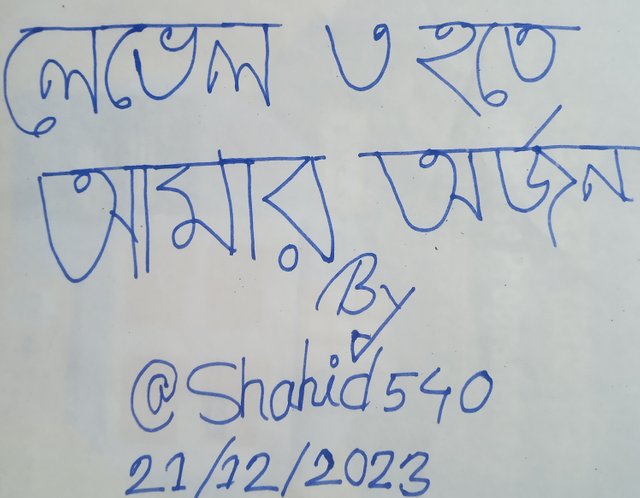 লেভেল ৩ হতে
আমার অর্জন
By
@Shahid540
21/12/2023